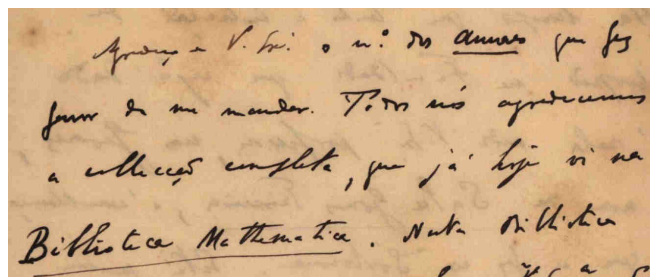 Agradeço a V. Exª. o nº. dos Annaes que fez
favor de me mandar. Todos nós agradecemos
a collecção completa, que já hoje vi na
Bibliotheca Mathematica. Nesta Bibliotheca